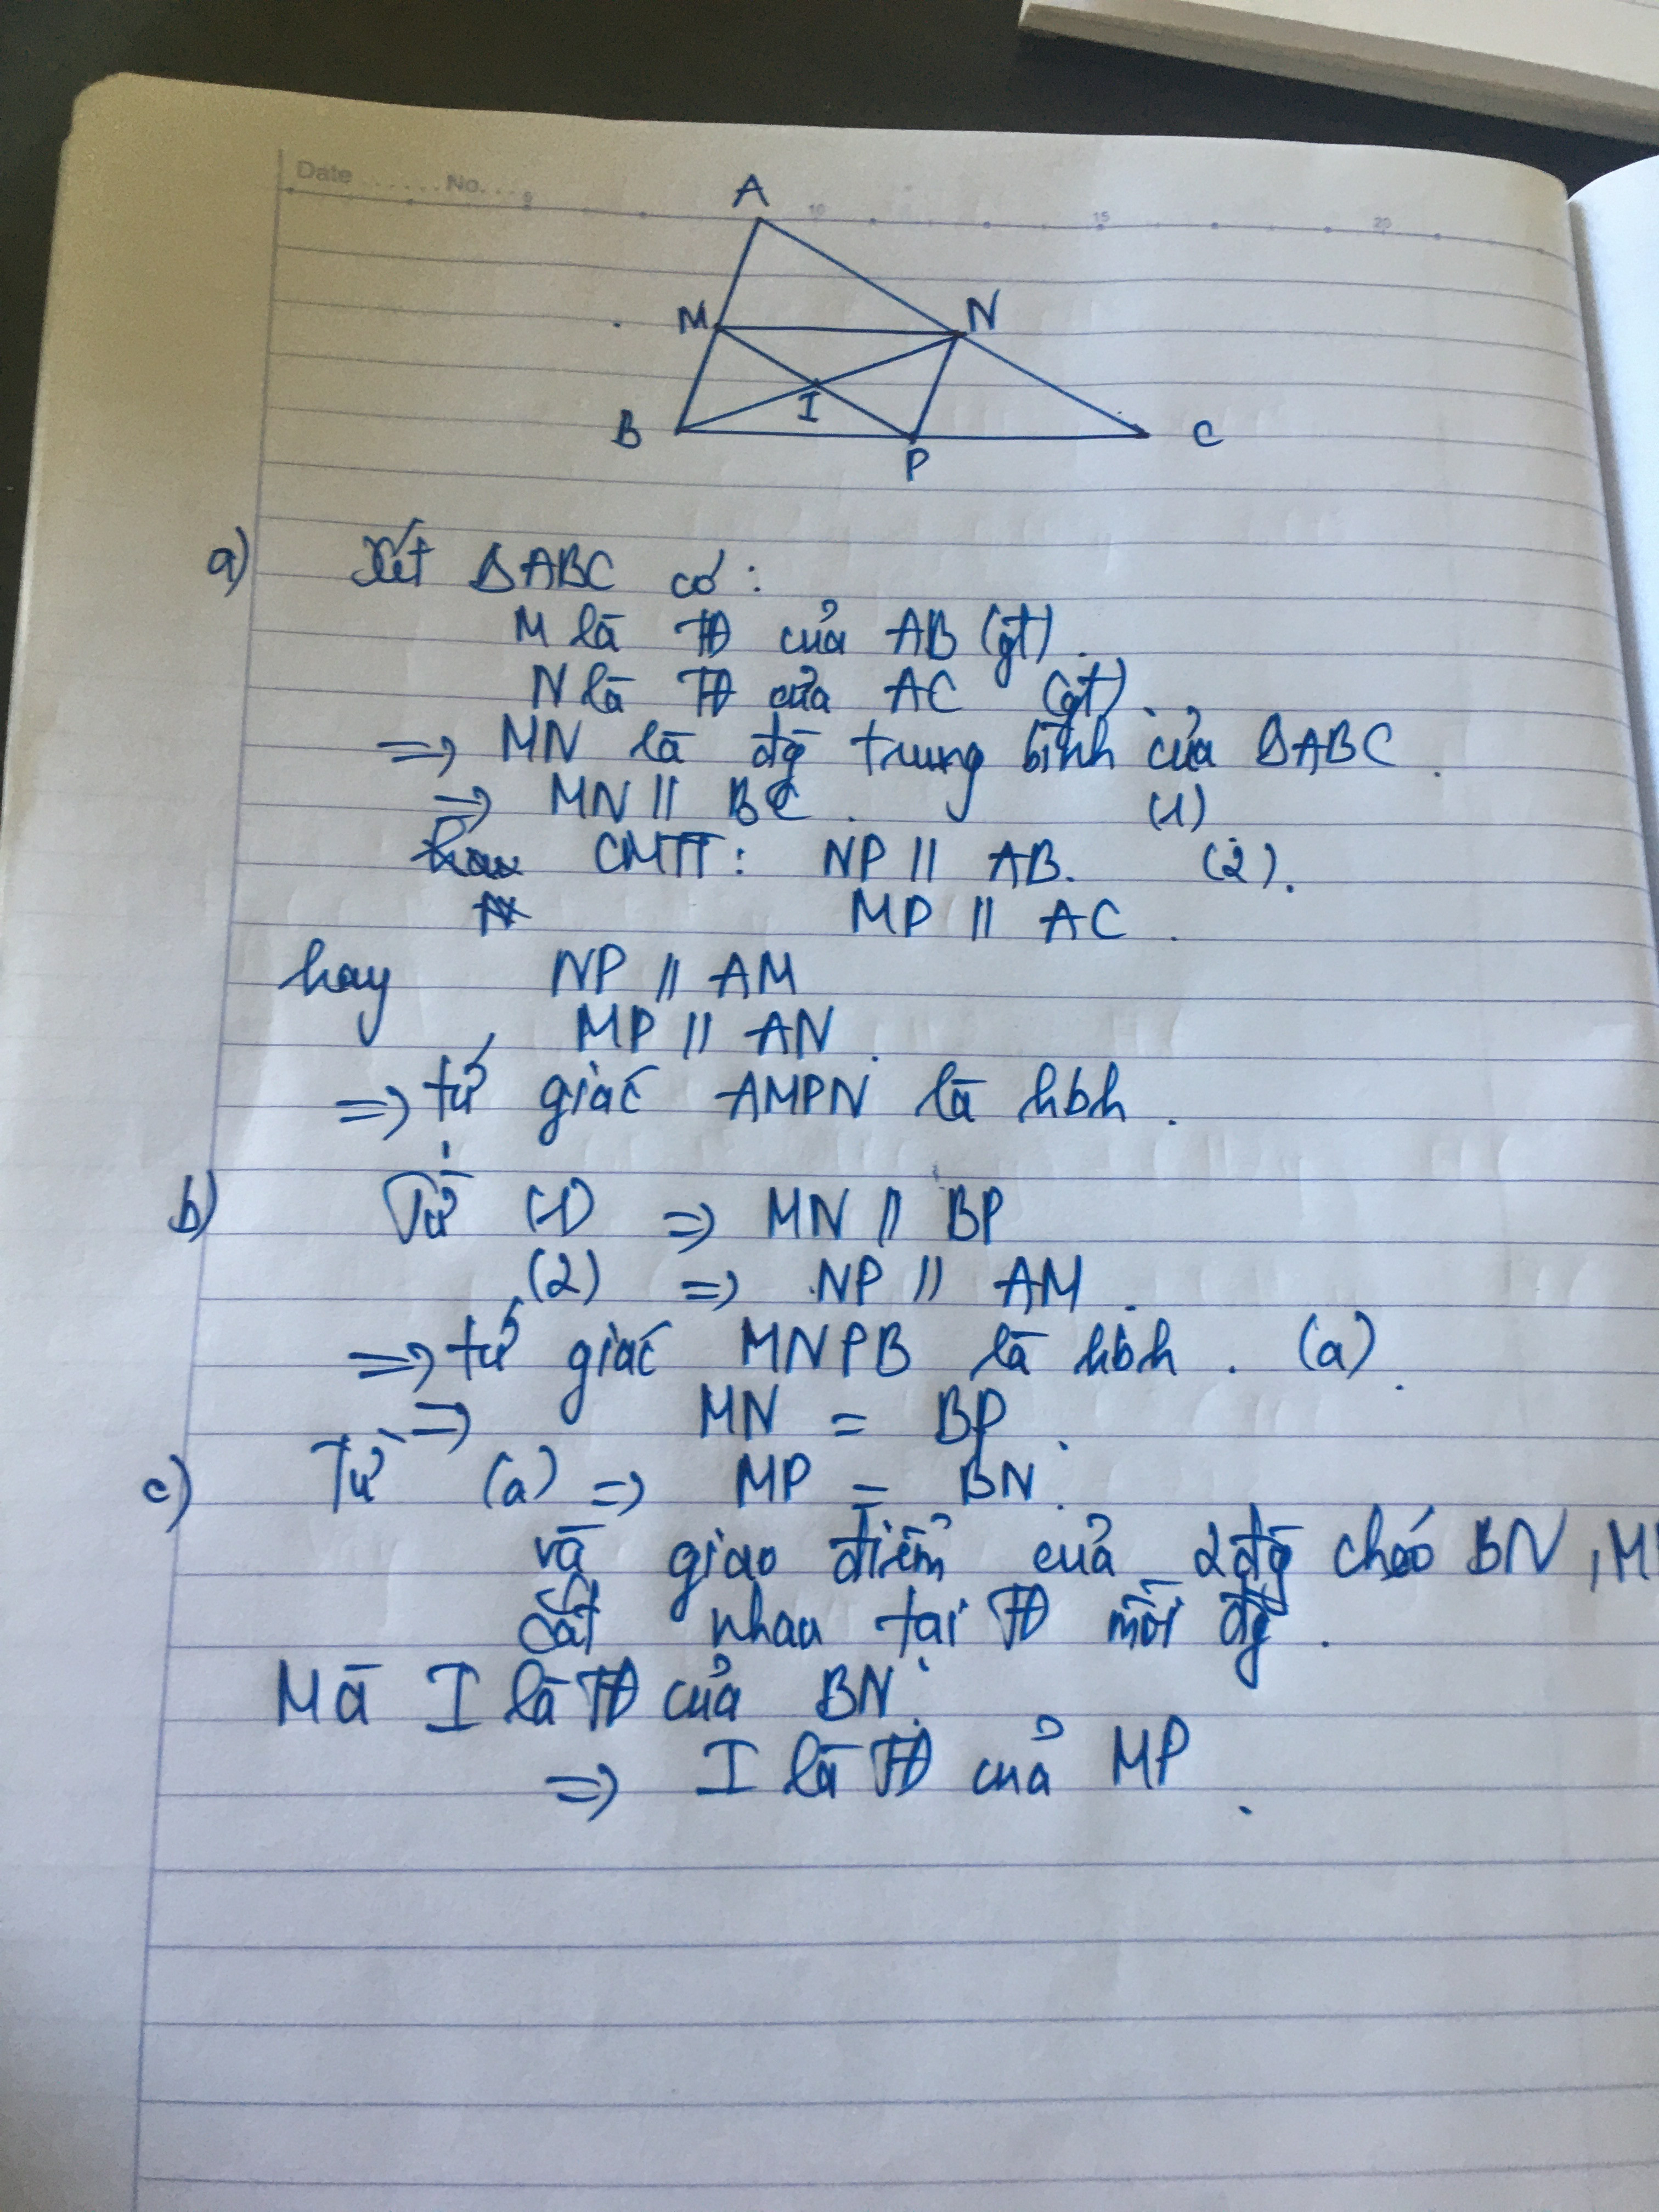 Date ...... No. ...
5 10 15 20
A
M N
I
B P C
a) Xét ΔABC có:
M là TĐ của AB (gt).
N là TĐ của AC (gt).
=> MN là đg trung bình của ΔABC.
=> MN // BC. (1)
CMTT: NP // AB. (2).
MP // AC.
hay NP // AM
MP // AN.
=> tứ giác AMPN là hbh.
b) Từ (1) => MN // BP
(2) => NP // AM.
=> tứ giác MNPB là hbh. (a).
=> MN = BP.
c) Từ (a) => MP = BN.
và giao điểm của 2 đg chéo BN, M
cắt nhau tại TĐ mỗi đg.
Mà I là TĐ của BN.
=> I là TĐ của MP.